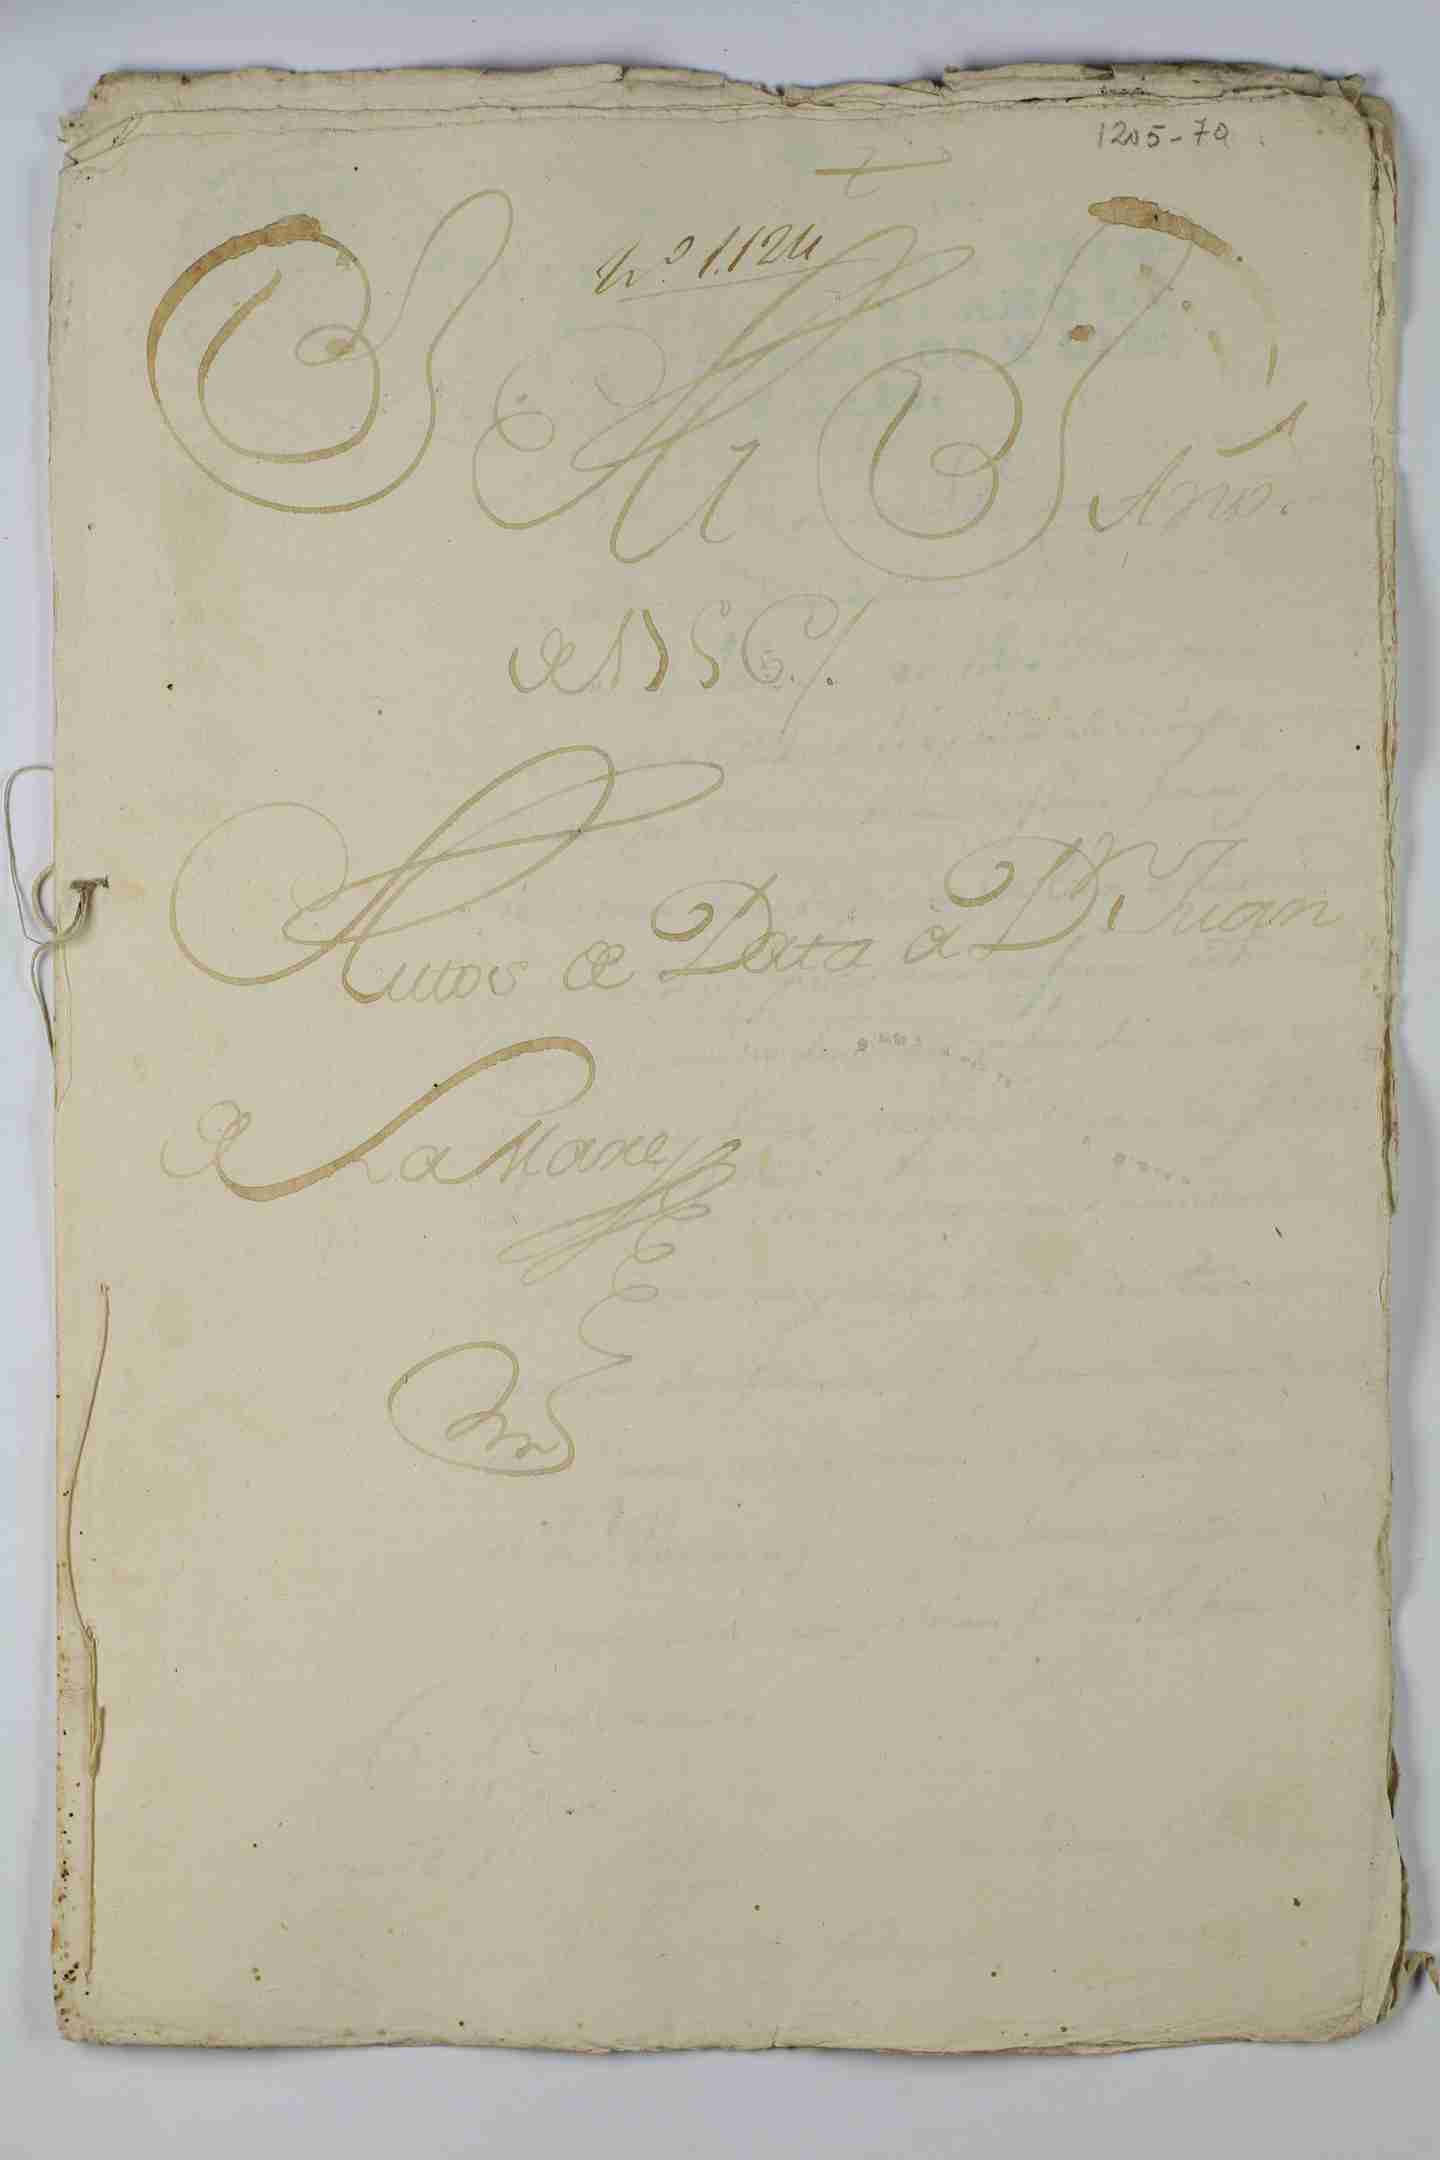 1205-70
nº 1.124
Año.
de 1756/.
Autos de Data à Dn Juan
de La Mare